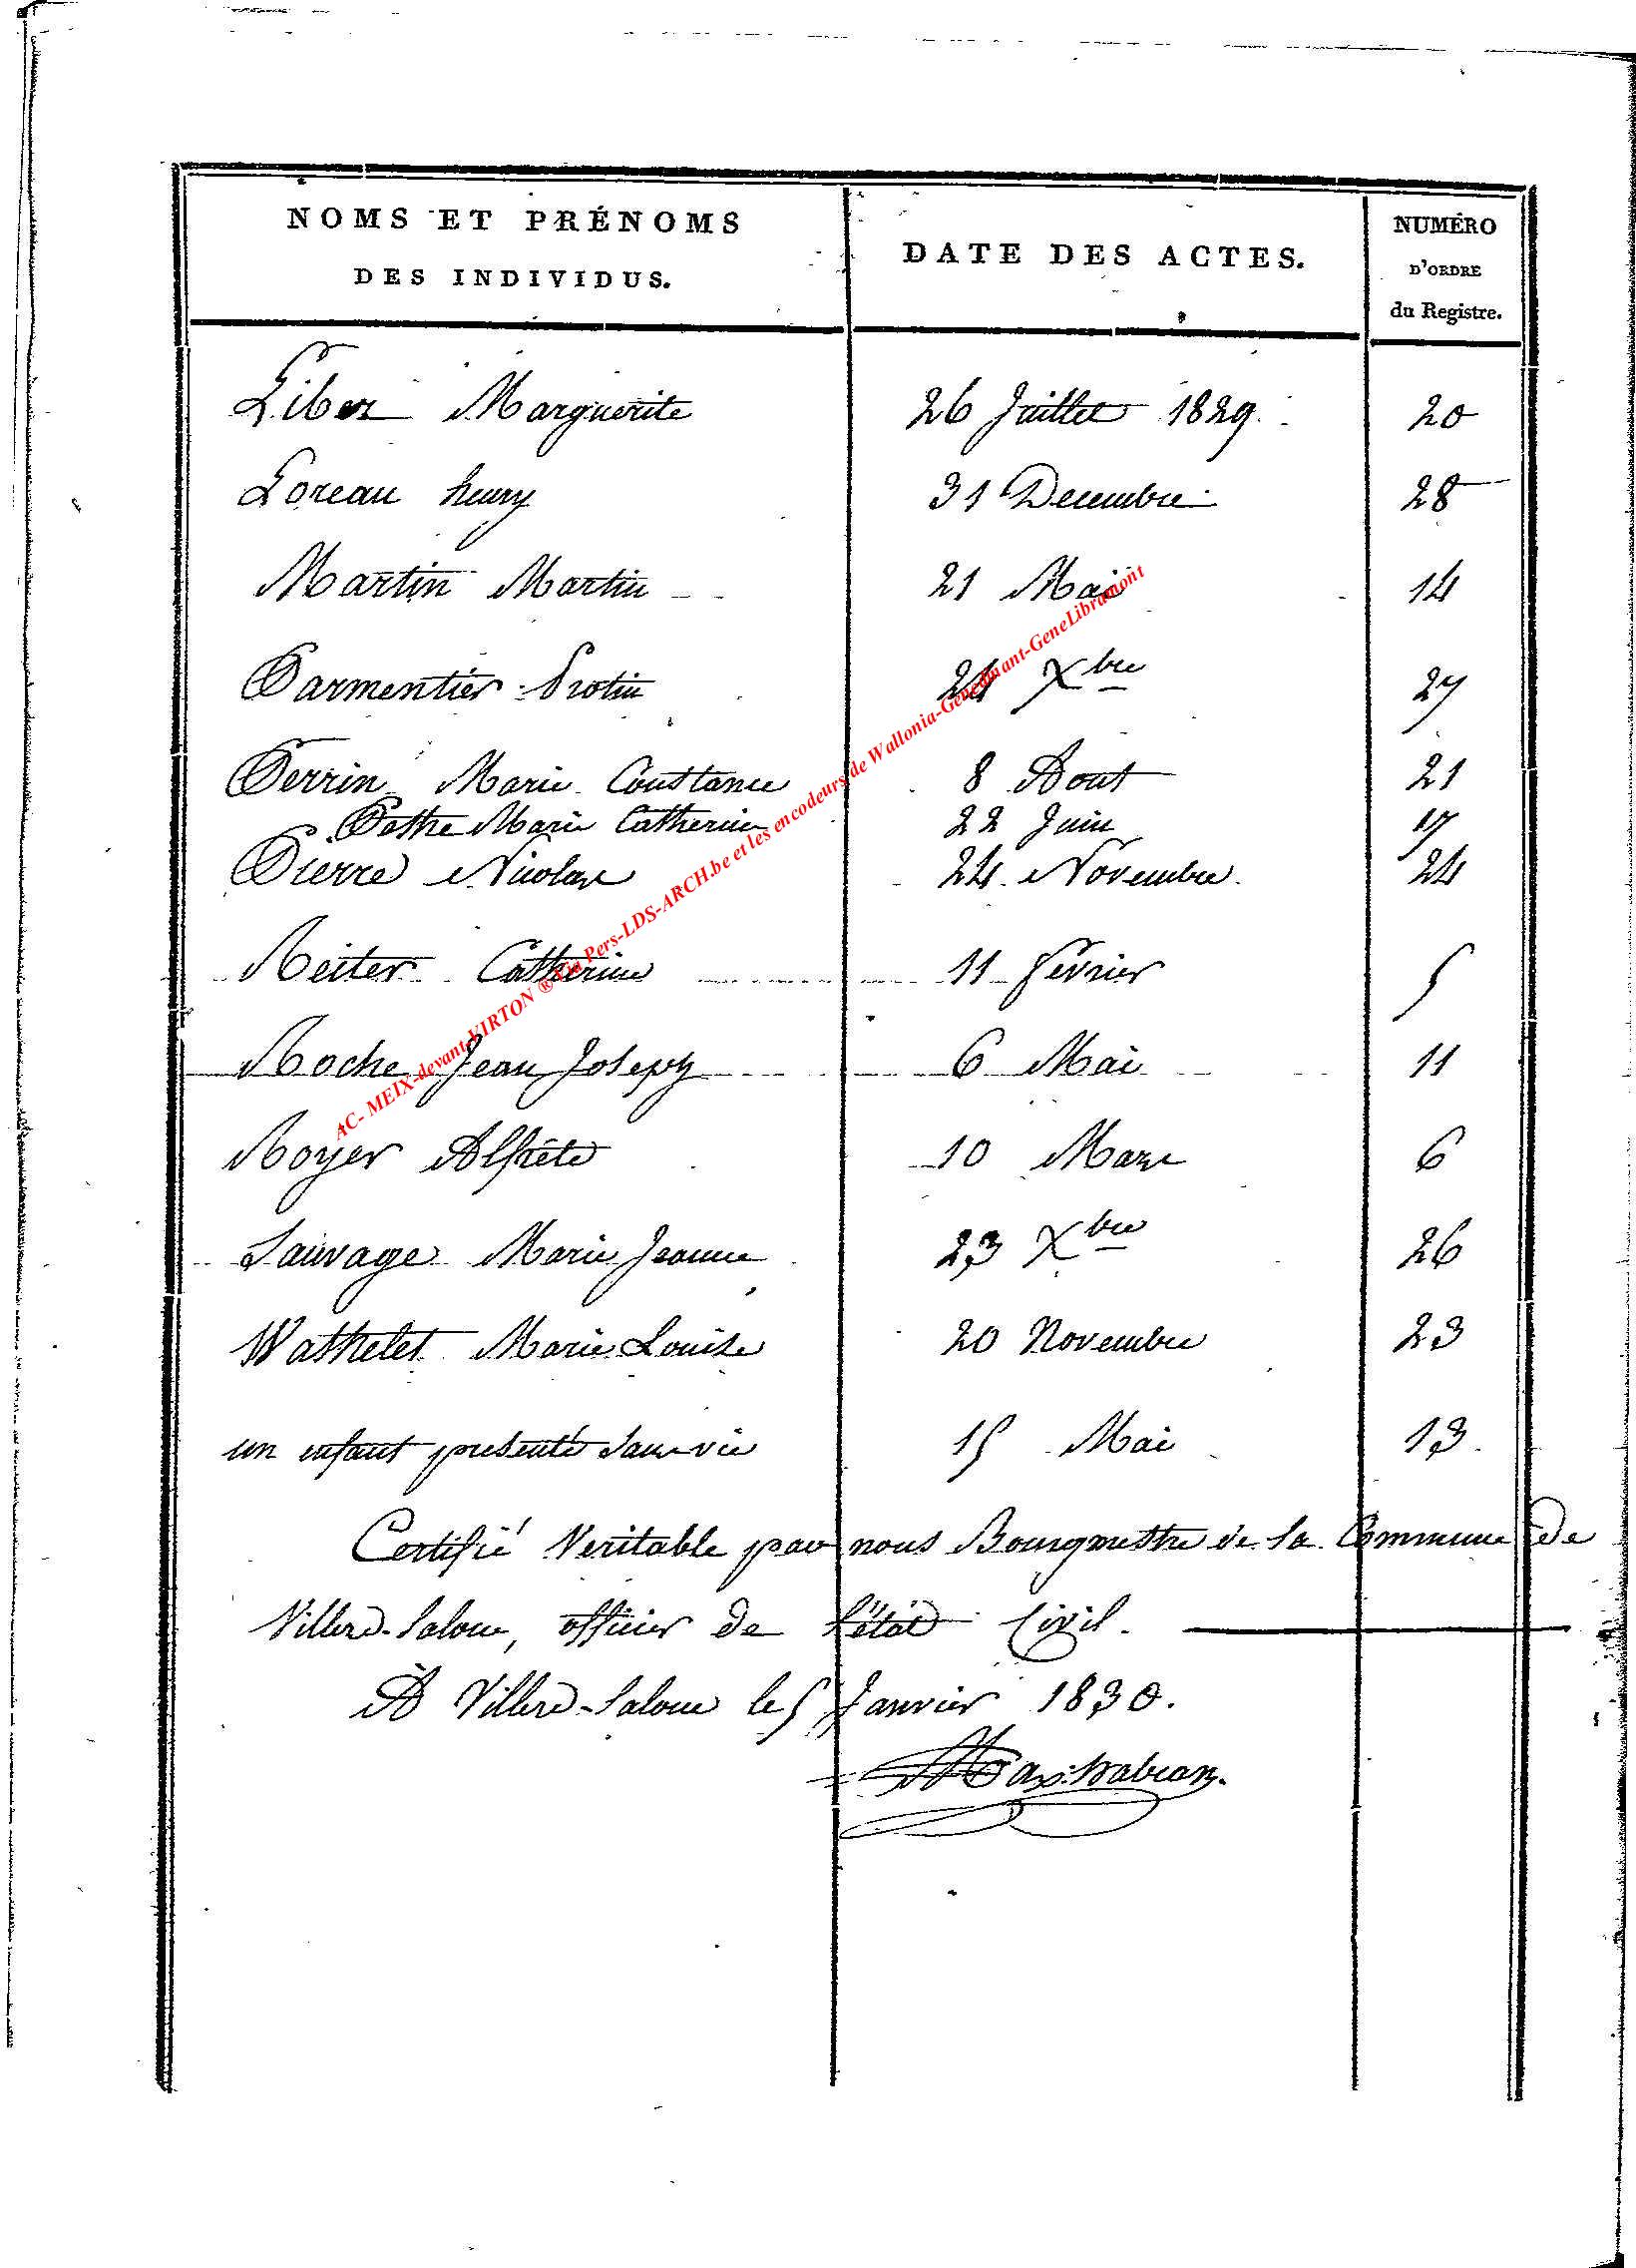 NOMS ET PRÉNOMS
DES INDIVIDUS.
DATE DES ACTES.
NUMÉRO
D'ORDRE
du Registre.
Liber Marguerite 26 Juillet 1829. 20
Loreau henry 31 Decembre 28
Martin Martin 21 Maï 14
Parmentier Protin 24 Xbre 27
Perrin Marie Constance 8 Aout 21
Pothe Marie Catherine 22 Juin 17
Pierre Nicolas 24 Novembre. 24
Reiter Catherine 11 fevrier 5
Roche Jean Joseph 6 Mai 11
Royer 10 Mars 6
Sauvage Marie Jeanne 23 Xbre 26
Wathelet Marie Louise 20 Novembre 23
un enfant presenté sans vie 15 Mai 13.
Certifié Veritable par nous Bourgmestre de la Commune de
Villers-laloue, officier de L'état Civil.
A Villers-laloue le 5 Janvier 1830.
AC- MEIX-devant-VIRTON ® Pers-LDS-ARCH.be et les encodeurs de Wallonia-Genedinant-GeneLibramont